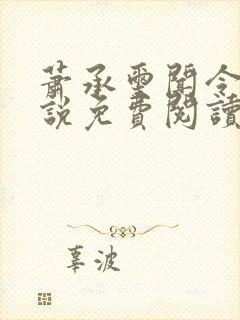 蕭承墨聞令
說免費閱讀
辜波